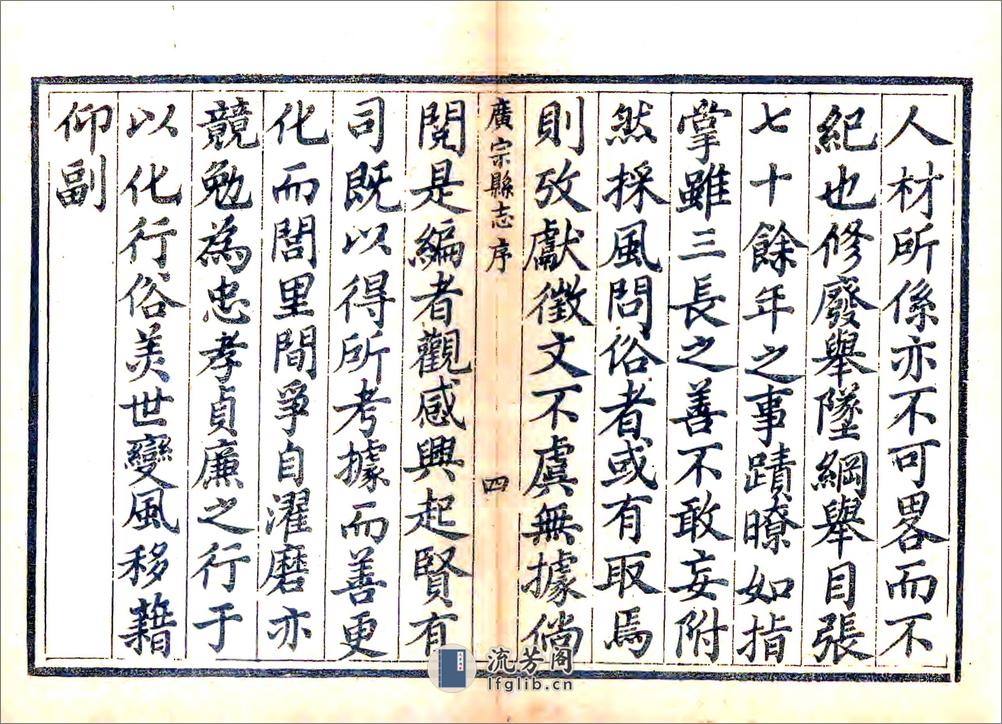 人材所係亦不可畧而不
紀也修廢舉墜綱舉目張
七十餘年之事蹟瞭如指
掌雖三長之善不敢妄附
然採風問俗者或有取焉
則攷獻徵文不虞無據倘
廣宗縣志序 四
閱是編者觀感興起賢有
司既以得所考據而善更
化而閭里間爭自濯磨亦
競勉為忠孝貞廉之行于
以化行俗美世變風移藉
仰副
流芳阁
lfglib.cn